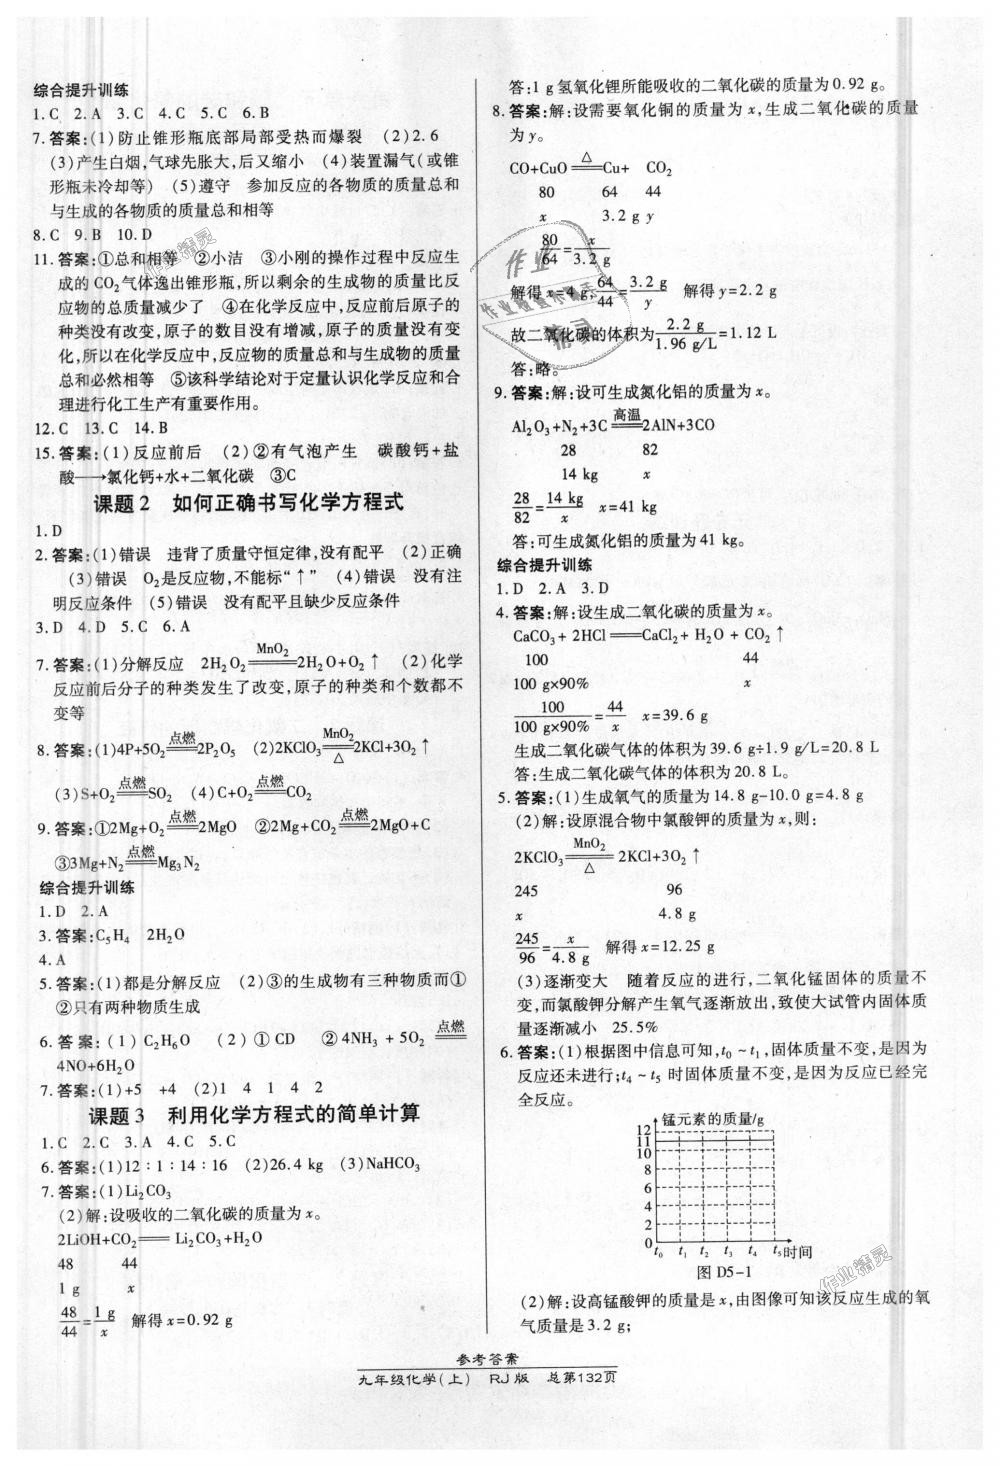 综合提升训练
1.C 2.A 3.C 4.C 5.C 6.B
7.答案:(1)防止锥形瓶底部局部受热而爆裂 (2)2.6
(3)产生白烟,气球先胀大,后又缩小 (4)装置漏气(或锥
形瓶未冷却等) (5)遵守 参加反应的各物质的质量总和
与生成的各物质的质量总和相等
8.C 9.B 10.D
11.答案:①总和相等 ②小洁 ③小刚的操作过程中反应生
成的CO₂气体逸出锥形瓶,所以剩余的生成物的质量比反
应物的总质量减少了 ④在化学反应中,反应前后原子的
种类没有改变,原子的数目没有增减,原子的质量没有变
化,所以在化学反应中,反应物的质量总和与生成物的质量
总和必然相等 ⑤该科学结论对于定量认识化学反应和合
理进行化工生产有重要作用。
12.C 13.C 14.B
15.答案:(1)反应前后 (2)②有气泡产生 碳酸钙+盐
酸⟶氯化钙+水+二氧化碳 ③C
课题2 如何正确书写化学方程式
1.D
2.答案:(1)错误 违背了质量守恒定律,没有配平 (2)正确
(3)错误 O₂是反应物,不能标“↑” (4)错误 没有注
明反应条件 (5)错误 没有配平且缺少反应条件
3.D 4.D 5.C 6.A
7.答案:(1)分解反应 2H₂O₂ =MnO₂= 2H₂O+O₂↑ (2)化学
反应前后分子的种类发生了改变,原子的种类和个数都不
变等
8.答案:(1)4P+5O₂ =点燃= 2P₂O₅ (2)2KClO₃ =MnO₂/△= 2KCl+3O₂↑
(3)S+O₂ =点燃= SO₂ (4)C+O₂ =点燃= CO₂
9.答案:①2Mg+O₂ =点燃= 2MgO ②2Mg+CO₂ =点燃= 2MgO+C
③3Mg+N₂ =点燃= Mg₃N₂
综合提升训练
1.D 2.A
3.答案:C₅H₄ 2H₂O
4.A
5.答案:(1)都是分解反应 (2)③的生成物有三种物质而①
②只有两种物质生成
6.答案:(1)C₂H₆O (2)①CD ②4NH₃ + 5O₂ =点燃=
4NO+6H₂O
7.答案:(1)+5 +4 (2)1 4 1 4 2
课题3 利用化学方程式的简单计算
1.C 2.C 3.A 4.C 5.C
6.答案:(1)12∶1∶14∶16 (2)26.4 kg (3)NaHCO₃
7.答案:(1)Li₂CO₃
(2)解:设吸收的二氧化碳的质量为x。
2LiOH+CO₂══Li₂CO₃+H₂O
48 44
1 g x
48/44=1 g/x 解得x=0.92 g
答:1 g氢氧化锂所能吸收的二氧化碳的质量为0.92 g。
8.答案:解:设需要氧化铜的质量为x,生成二氧化碳的质量
为y。
CO+CuO =△= Cu+ CO₂
80 64 44
x 3.2 g y
80/64=x/3.2 g
解得x=4 g;64/44=3.2 g/y 解得y=2.2 g
故二氧化碳的体积为2.2 g/1.96 g/L=1.12 L
答:略。
9.答案:解:设可生成氮化铝的质量为x。
Al₂O₃+N₂+3C =高温= 2AlN+3CO
28 82
14 kg x
28/82=14 kg/x x=41 kg
答:可生成氮化铝的质量为41 kg。
综合提升训练
1.D 2.A 3.D
4.答案:解:设生成二氧化碳的质量为x。
CaCO₃+ 2HCl══CaCl₂+ H₂O + CO₂↑
100 44
100 g×90% x
100/100 g×90%=44/x x=39.6 g
生成二氧化碳气体的体积为39.6 g÷1.9 g/L=20.8 L
答:生成二氧化碳气体的体积为20.8 L。
5.答案:(1)生成氧气的质量为14.8 g-10.0 g=4.8 g
(2)解:设原混合物中氯酸钾的质量为x,则:
2KClO₃ =MnO₂/△= 2KCl+3O₂↑
245 96
x 4.8 g
245/96=x/4.8 g 解得x=12.25 g
(3)逐渐变大 随着反应的进行,二氧化锰固体的质量不
变,而氯酸钾分解产生氧气逐渐放出,致使大试管内固体质
量逐渐减小 25.5%
6.答案:(1)根据图中信息可知,t₀~t₁,固体质量不变,是因为
反应还未进行;t₄~t₅时固体质量不变,是因为反应已经完
全反应。
锰元素的质量/g
12
11
10
8
6
4
2
0
t₀ t₁ t₂ t₃ t₄ t₅ 时间
图 D5-1
(2)解:设高锰酸钾的质量是x,由图像可知该反应生成的氧
气质量是3.2 g;
参考答案
九年级化学(上) RJ版 总第132页
作业精灵
作业精灵